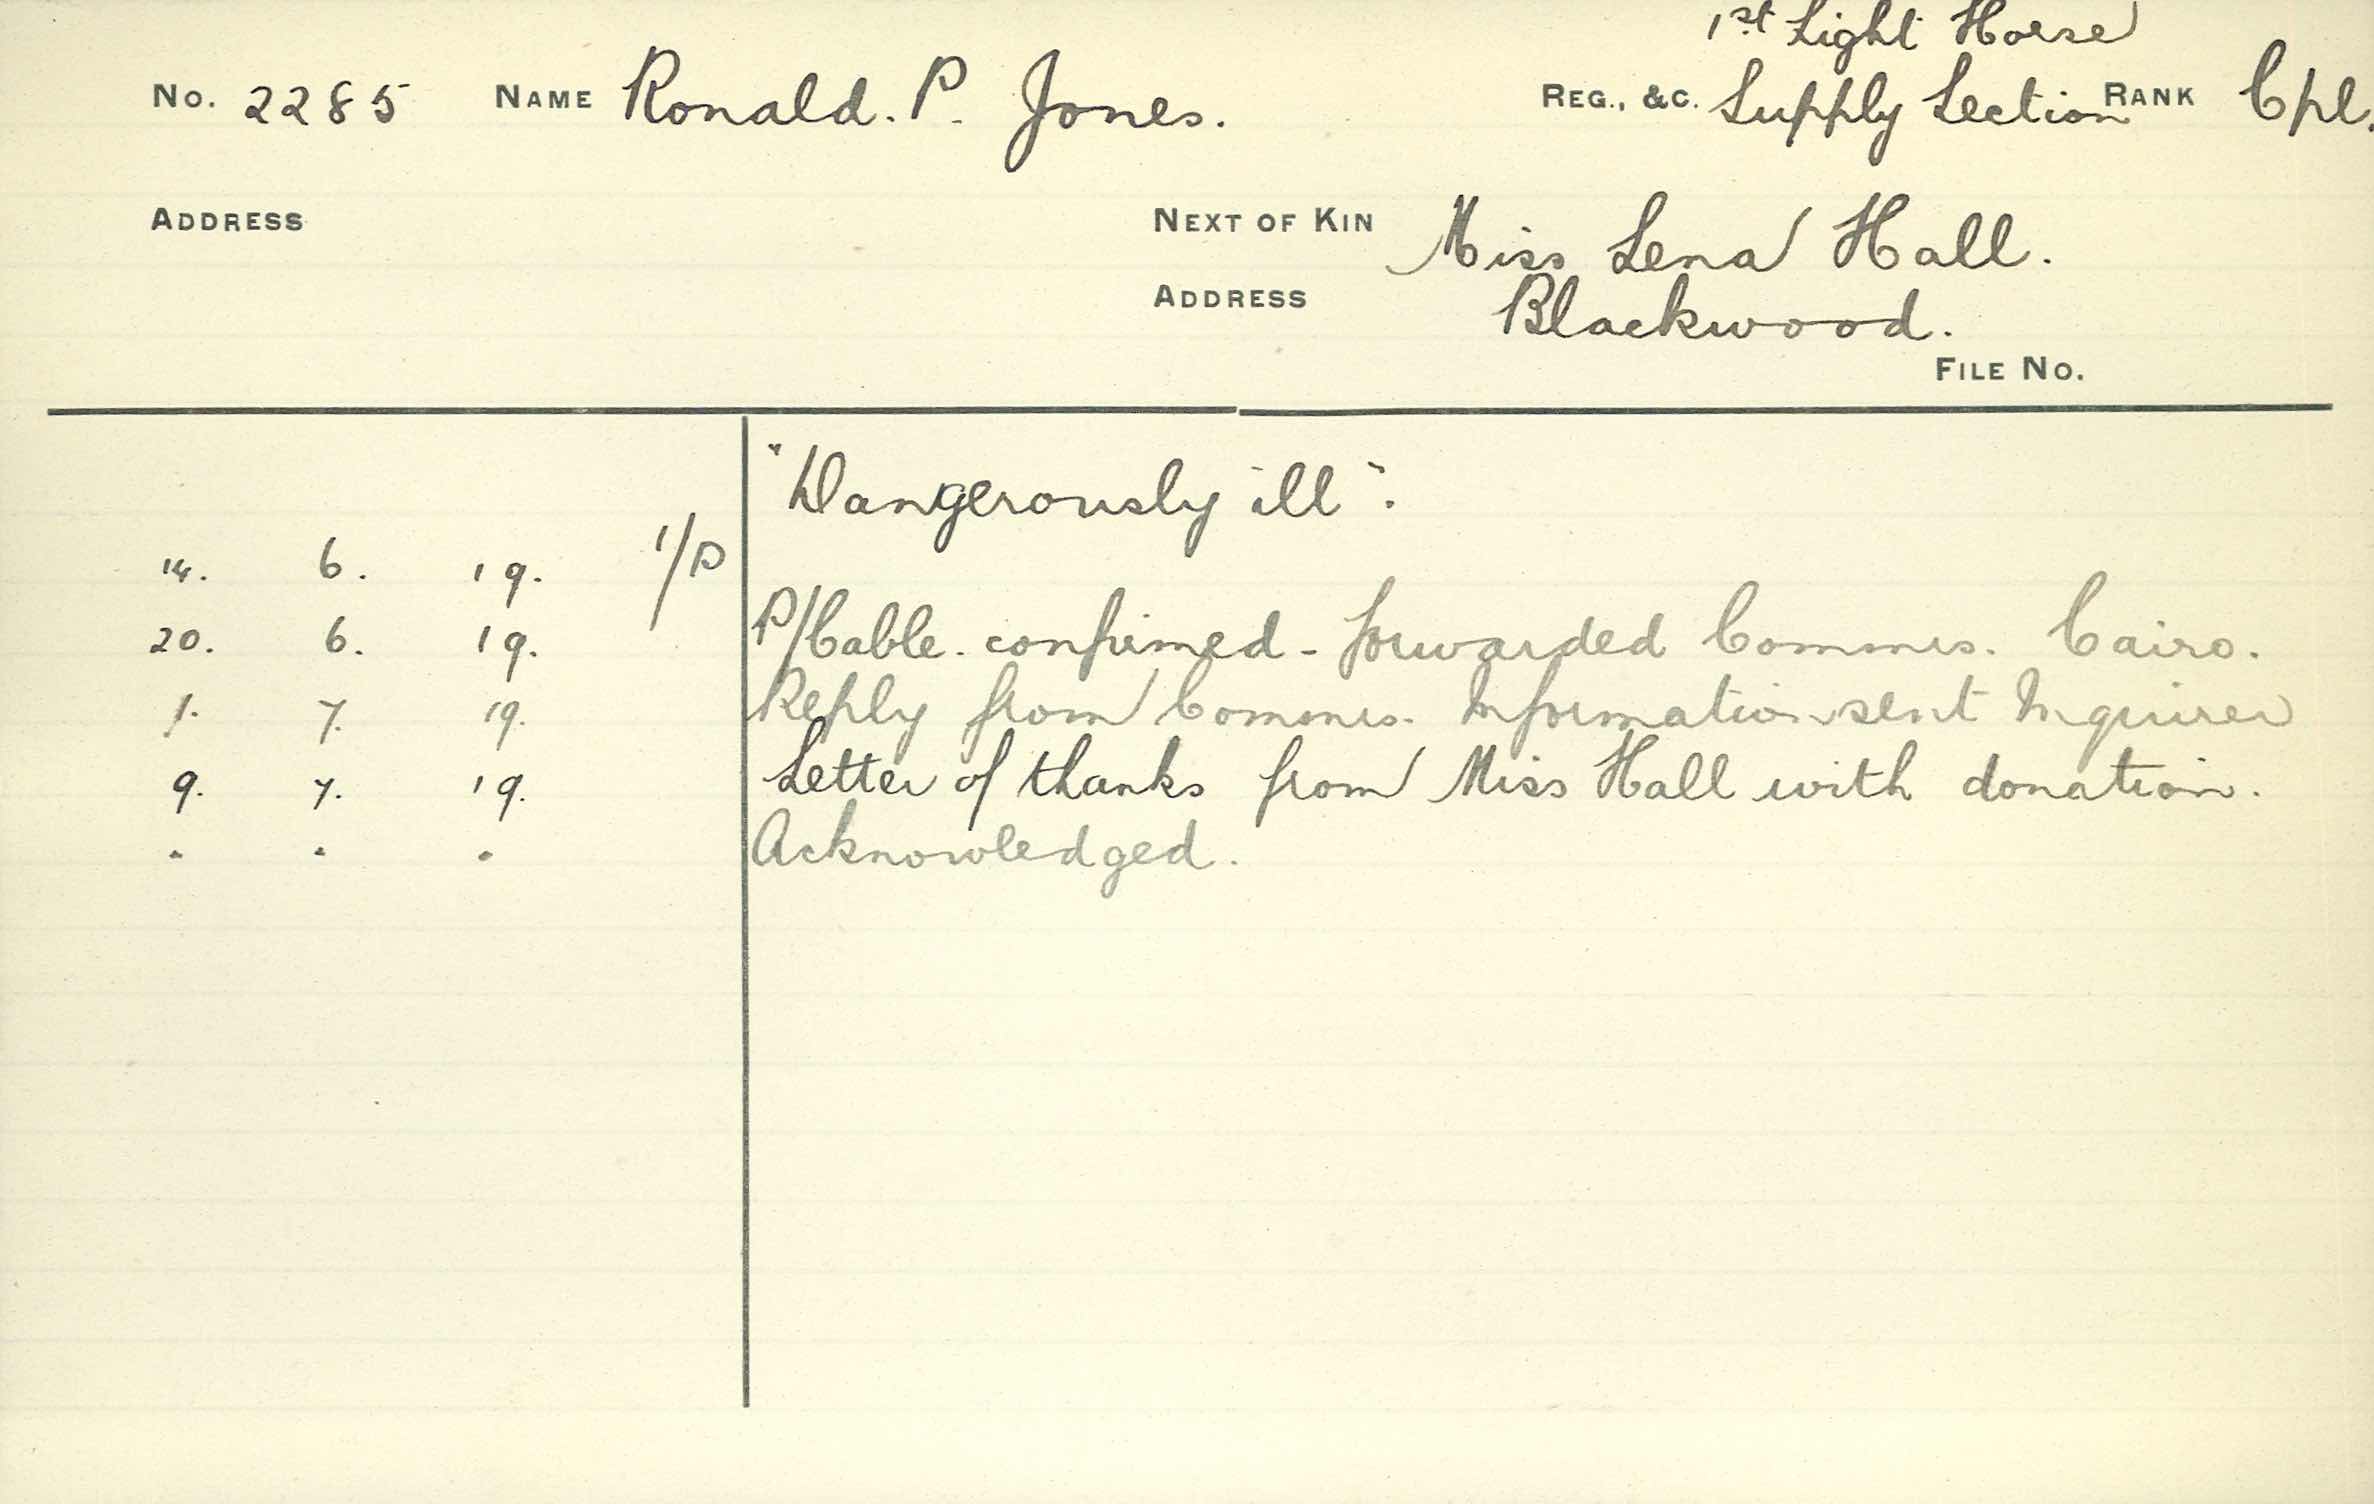 1st Light Horse
No. 2285 NAME Ronald. P. Jones. REG., &C. Supply Section RANK Cpl.
ADDRESS NEXT OF KIN Miss Lena Hall.
ADDRESS Blackwood.
FILE No.
"Dangerously ill".
14. 6. 19. 1/P
20. 6. 19. P/Cable. confirmed - forwarded Commrs. Cairo.
1. 7. 19. Reply from Commrs. Information sent Inquirer
9. 7. 19. Letter of thanks from Miss Hall with donation.
" " " Acknowledged.